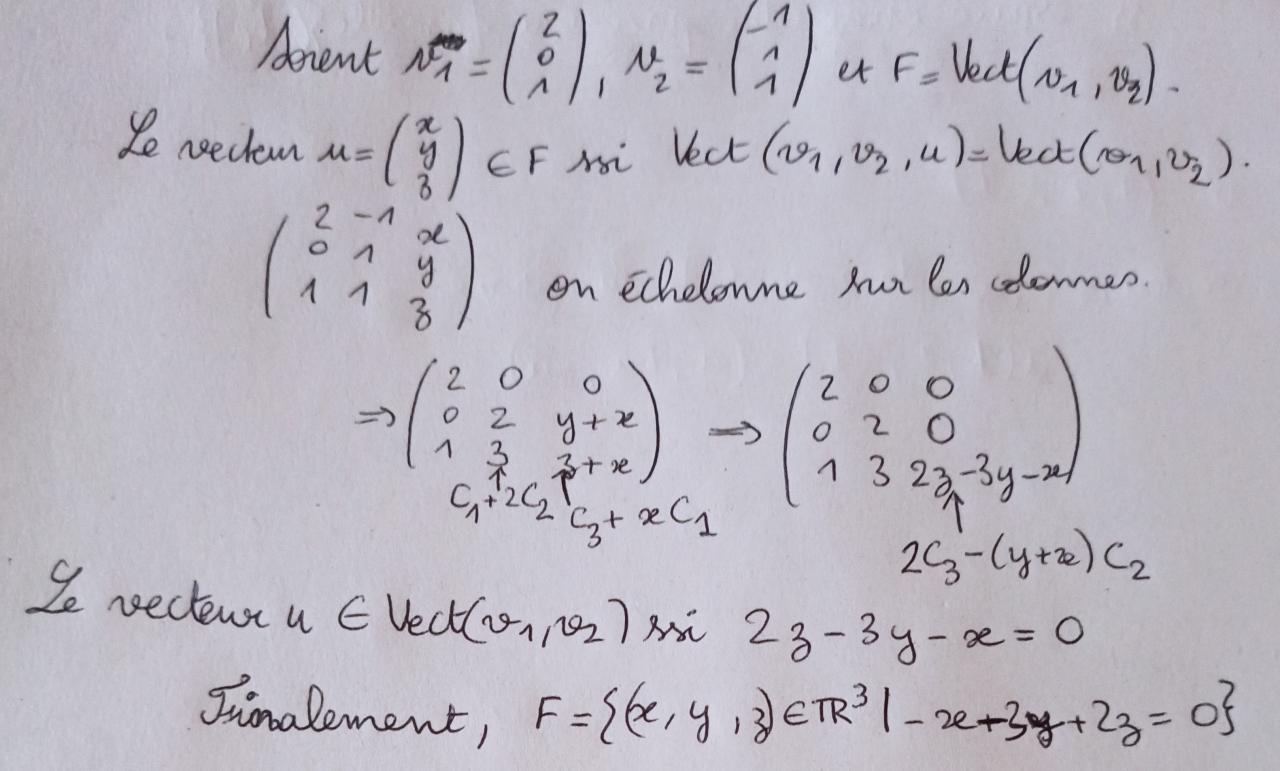 Soient v₁ = (2 0 1), v₂ = (-1 1 1) et F = Vect(v₁, v₂).
Le vecteur u = (x y z) ∈ F ssi Vect(v₁, v₂, u) = Vect(v₁, v₂).
(2 -1 x
0 1 y
1 1 z) on échelonne sur les colonnes.
⇒ (2 0 0
0 2 y+x
1 3 z+x)
C₁+2C₂ C₃+xC₁
⇒ (2 0 0
0 2 0
1 3 2z-3y-x)
2C₃-(y+x)C₂
Le vecteur u ∈ Vect(v₁, v₂) ssi 2z-3y-x=0
Finalement, F={(x, y, z) ∈ ℝ³ | -x+3y+2z=0}